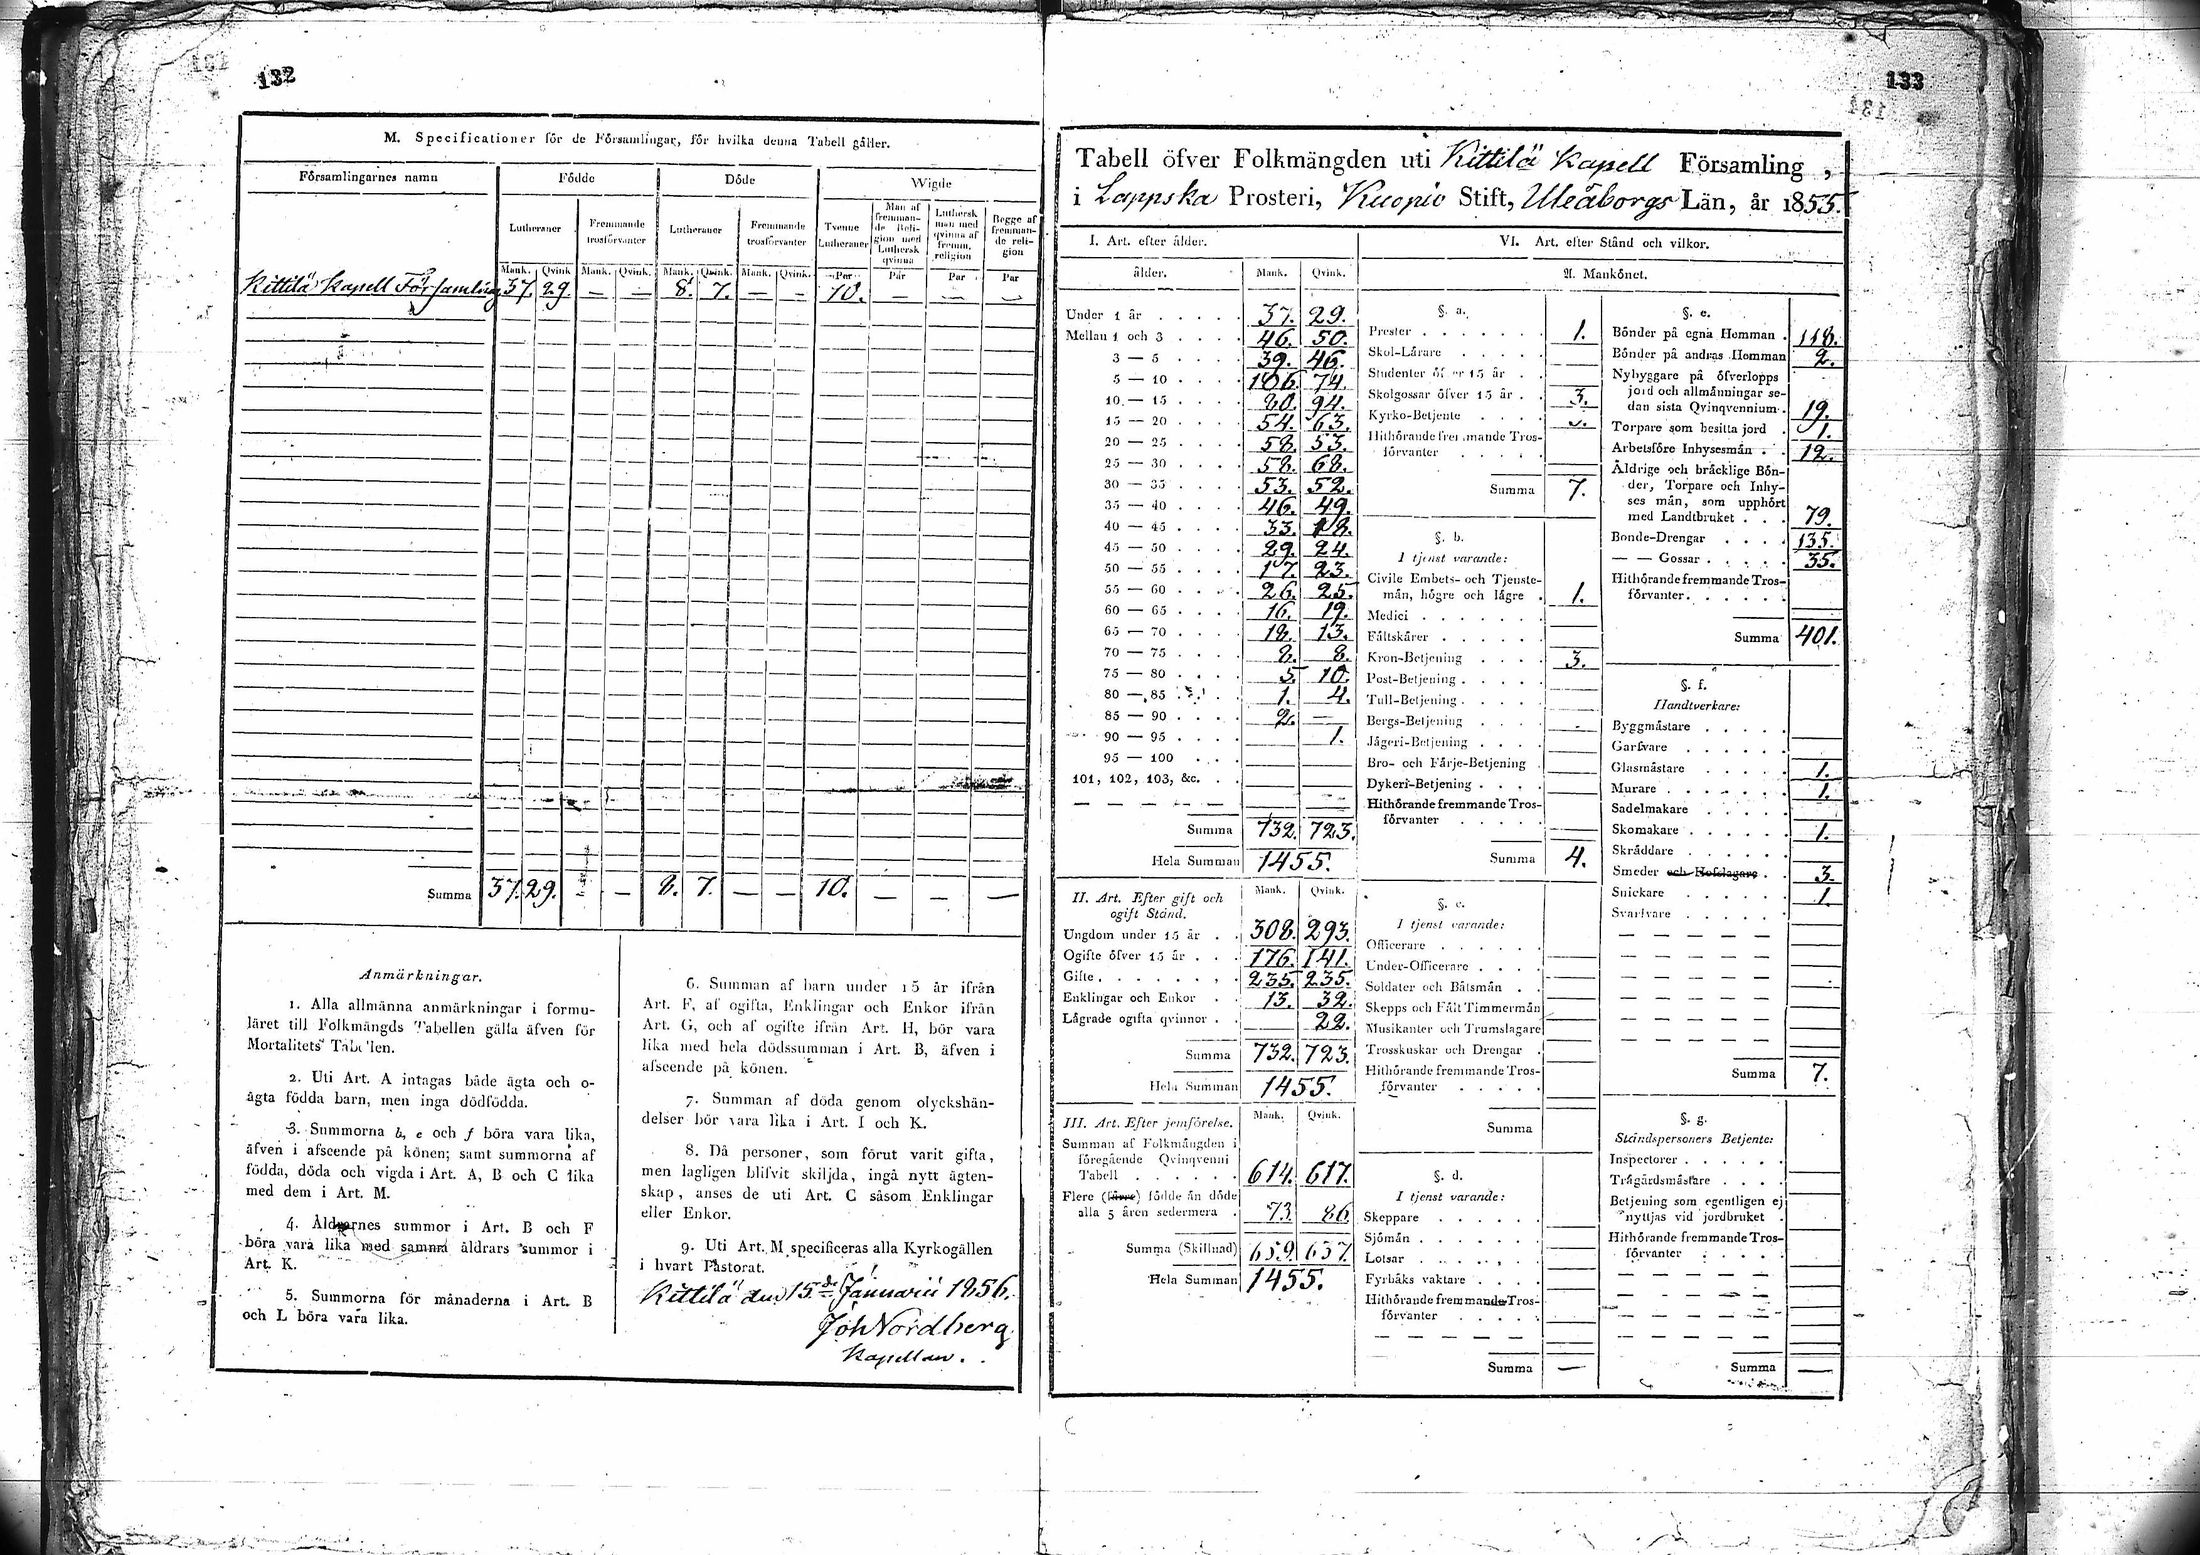 132
M. Specificationer för de Församlingar, för hvilka denna Tabell gäller.
Församlingarnes namn Födde Döde Wigde
Lutheraner Fremmande trosförvanter Lutheraner Fremmande trosförvanter Tvenne Lutheraner Man af fremmande Religion med Luthersk qvinna Luthersk man med qvinna af fremm. religion Begge af fremmande religion
Mank. Qvink Mank. Qvink. Mank. Qvink. Mank. Qvink. Par Par Par Par
Kittilä Kapell Församling 37. 29. — — 8. 7. — — 10. — — —
Summa 37. 29. — — 8. 7. — — 10. — — —
Anmärkningar.
1. Alla allmänna anmärkningar i formu-
läret till Folkmängds Tabellen gälla äfven för
Mortalitets Tabellen.
2. Uti Art. A intagas både ägta och o-
ägta födda barn, men inga dödfödda.
3. Summorna b, e och f böra vara lika,
äfven i afseende på könen; samt summorna af
födda, döda och vigda i Art. A, B och C lika
med dem i Art. M.
4. Åldrarnes summor i Art. B och F
böra vara lika med samma åldrars summor i
Art. K.
5. Summorna för månaderna i Art. B
och L böra vara lika.
6. Summan af barn under 15 år ifrån
Art. F, af ogifta, Enklingar och Enkor ifrån
Art. G, och af ogifte ifrån Art. H, bör vara
lika med hela dödssumman i Art. B, äfven i
afseende på könen.
7. Summan af döda genom olyckshän-
delser bör vara lika i Art. I och K.
8. Då personer, som förut varit gifta,
men lagligen blifvit skiljda, ingå nytt ägten-
skap, anses de uti Art. C såsom Enklingar
eller Enkor.
9. Uti Art. M specificeras alla Kyrkogällen
i hvart Pastorat.
Kittilä den 15de Januarii 1856.
Joh Nordberg
Kapellan.
133
Tabell öfver Folkmängden uti Kittilä Kapell Församling,
i Lappska Prosteri, Kuopio Stift, Uleåborgs Län, år 1855.
I. Art. efter ålder.
ålder. Mank. Qvink.
Under 1 år 37. 29.
Mellan 1 och 3 46. 50.
3 — 5 39. 46.
5 — 10 106. 74.
10 — 15 80. 94.
15 — 20 54. 63.
20 — 25 58. 53.
25 — 30 58. 68.
30 — 35 53. 52.
35 — 40 46. 49.
40 — 45 33. 18.
45 — 50 29. 24.
50 — 55 17. 23.
55 — 60 26. 25.
60 — 65 16. 19.
65 — 70 18. 13.
70 — 75 8. 8.
75 — 80 5. 10.
80 — 85 1. 4.
85 — 90 2. —
90 — 95 1.
95 — 100
101, 102, 103, &c.
Summa 732. 723.
Hela Summan 1455.
II. Art. Efter gift och ogift Stånd. Mank. Qvink.
Ungdom under 15 år 308. 293.
Ogifte öfver 15 år 176. 141.
Gifte 235. 235.
Enklingar och Enkor 13. 32.
Lägrade ogifta qvinnor 22.
Summa 732. 723.
Hela Summan 1455.
III. Art. Efter jemförelse. Mank. Qvink.
Summan af Folkmängden i
föregående Qvinqvenni
Tabell 614. 617.
Flere (färre) födde än döde
alla 5 åren sedermera 73 86
Summa (Skillnad) 659. 657.
Hela Summan 1455.
VI. Art. efter Stånd och vilkor.
A. Mankönet.
§. a.
Prester 1.
Skol-Lärare
Studenter öfver 15 år
Skolgossar öfver 15 år 3.
Kyrko-Betjente 3.
Hithörande fremmande Tros-
förvanter
Summa 7.
§. b.
I tjenst varande:
Civile Embets- och Tjenste-
män, högre och lägre 1.
Medici
Fältskärer
Kron-Betjening 3.
Post-Betjening
Tull-Betjening
Bergs-Betjening
Jägeri-Betjening
Bro- och Färje-Betjening
Dykeri-Betjening
Hithörande fremmande Tros-
förvanter
Summa 4.
§. c.
I tjenst varande:
Officerare
Under-Officerare
Soldater och Båtsmän
Skepps och Fält Timmermän
Musikanter och Trumslagare
Trosskuskar och Drengar
Hithörande fremmande Tros-
förvanter
Summa
§. d.
I tjenst varande:
Skeppare
Sjömän
Lotsar
Fyrbåks vaktare
Hithörande fremmande Tros-
förvanter
Summa —
§. e.
Bönder på egna Hemman 118.
Bönder på andras Hemman 2.
Nybyggare på öfverlopps
jord och allmänningar se-
dan sista Qvinqvennium 19.
Torpare som besitta jord 1.
Arbetsföre Inhysesmän 12.
Åldrige och bräcklige Bön-
der, Torpare och Inhy-
ses män, som upphört
med Landtbruket 79.
Bonde-Drengar 135.
— — Gossar 35.
Hithörande fremmande Tros-
förvanter
Summa 401.
§. f.
Handtverkare:
Byggmästare
Garfvare
Glasmästare 1.
Murare 1.
Sadelmakare
Skomakare 1.
Skräddare
Smeder och Hofslagare 3.
Snickare 1
Svarfvare
Summa 7.
§. g.
Ståndspersoners Betjente:
Inspectorer
Trägårdsmästare
Betjening som egentligen ej
nyttjas vid jordbruket
Hithörande fremmande Tros-
förvanter
Summa —